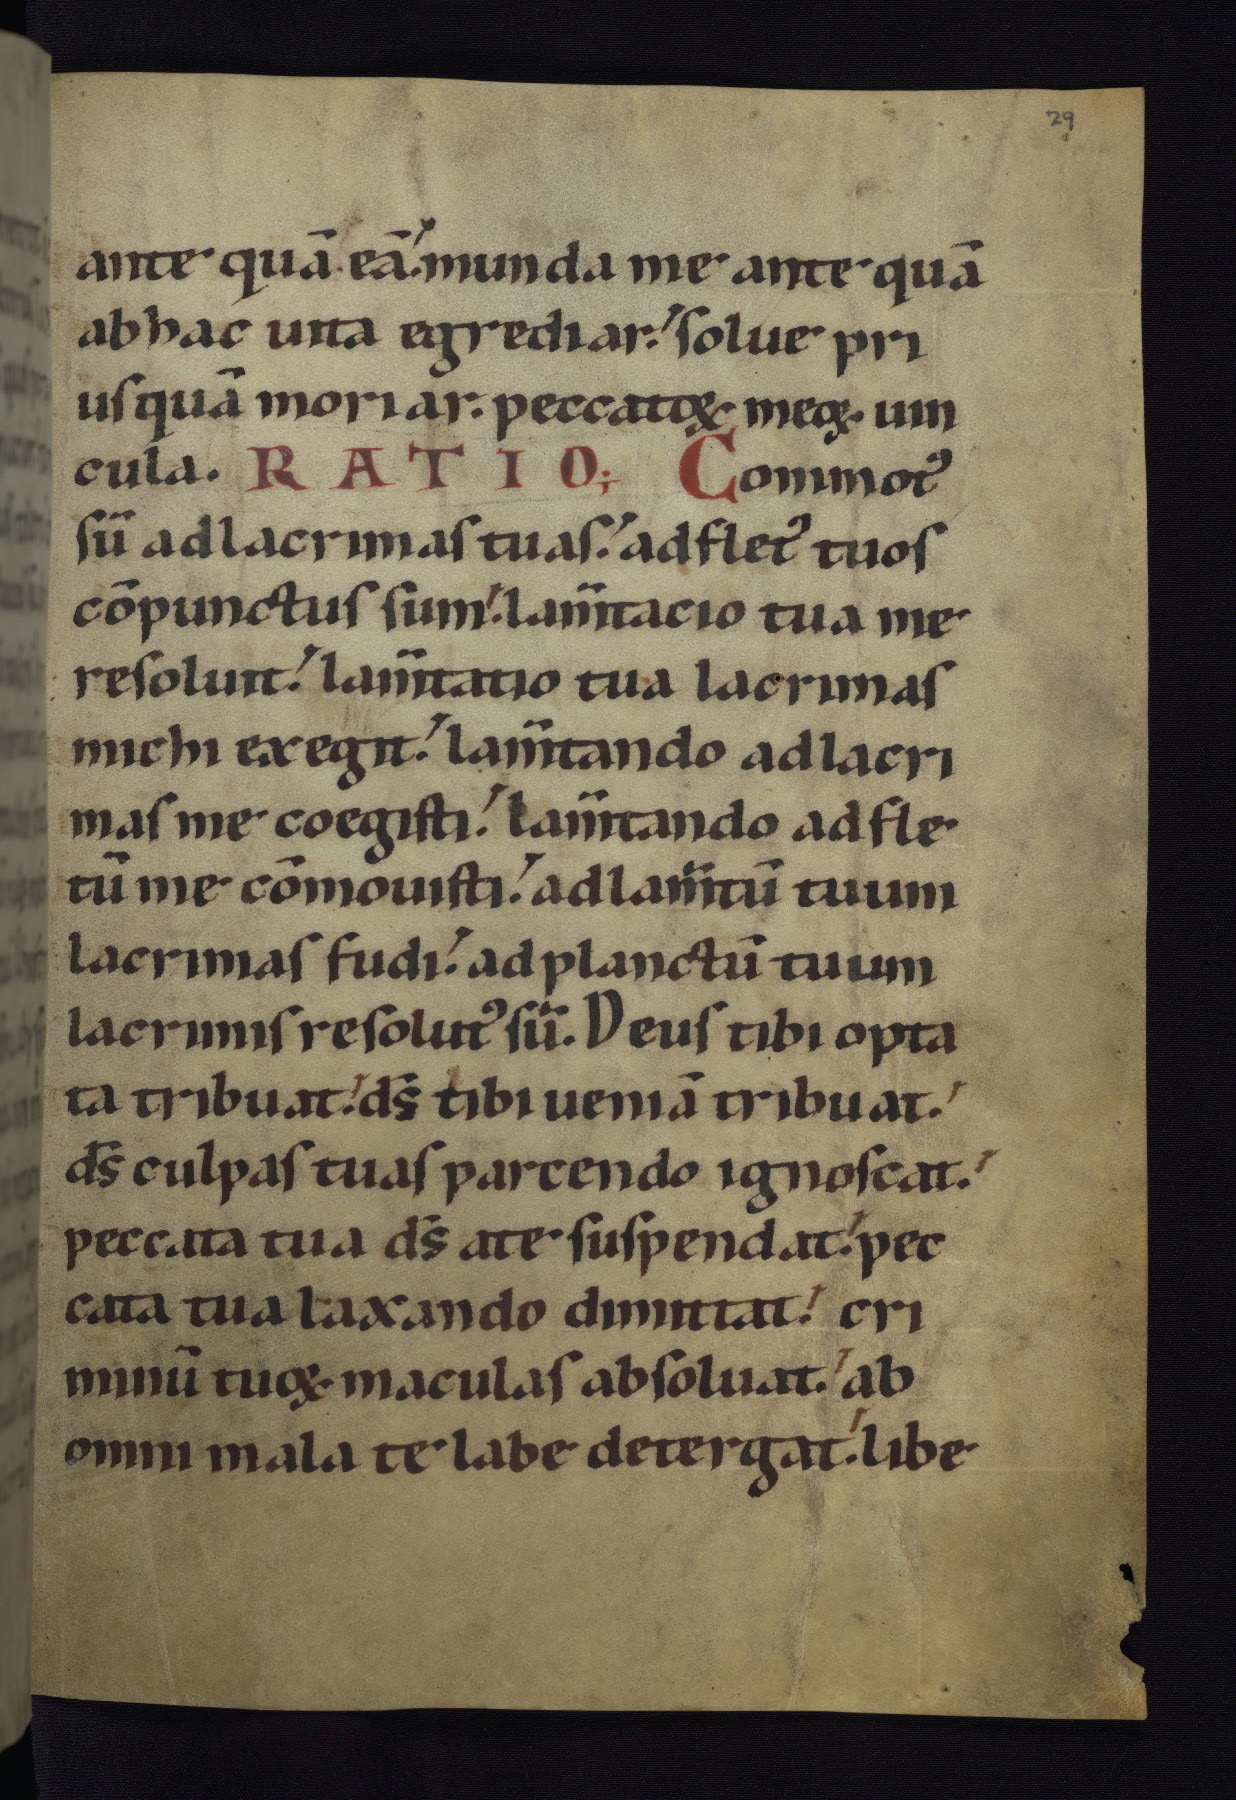 29
ante quā eā. munda me ante quā
ab hac uita egrediar. solue pri
usquā moriar. peccatoꝝ meoꝝ. uin
cula. RATIO; Commotꝰ
sū ad lacrimas tuas. ad fletꝰ tuos
cōpunctus sum. lam̄tacio tua me
resoluit. lam̄tatio tua lacrimas
michi exegit. lam̄tando ad lacri
mas me coegisti. lam̄tando ad fle
tū me cōmouisti. ad lam̄tū tuum
lacrimas fudi. ad planctū tuum
lacrimis resolutꝰ sū. Deus tibi opta
ta tribuat. ds̄ tibi ueniā tribuat.
ds̄ culpas tuas parcendo ignoscat.
peccata tua ds̄ a te suspendat. pec
cata tua laxando dimittat. cri
minū tuoꝝ maculas absoluat. ab
omni mala te labe detergat. libe